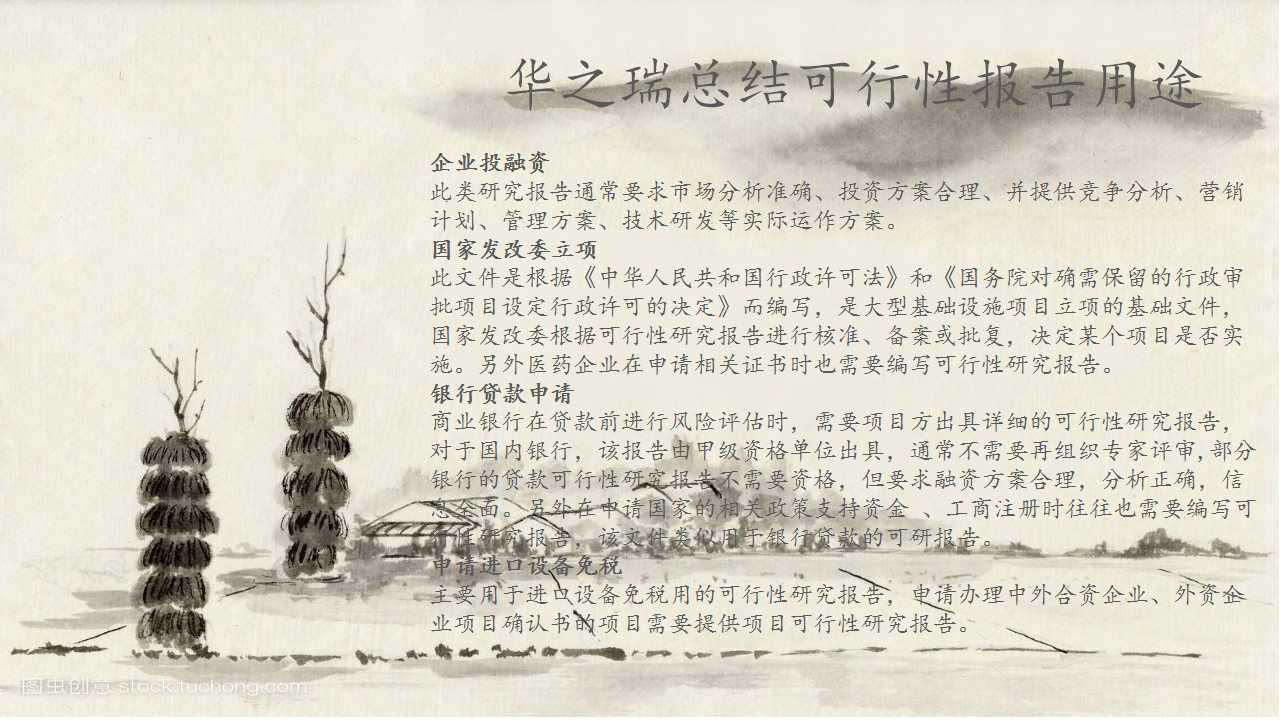 华之瑞总结可行性报告用途
企业投融资
此类研究报告通常要求市场分析准确、投资方案合理、并提供竞争分析、营销
计划、管理方案、技术研发等实际运作方案。
国家发改委立项
此文件是根据《中华人民共和国行政许可法》和《国务院对确需保留的行政审
批项目设定行政许可的决定》而编写，是大型基础设施项目立项的基础文件，
国家发改委根据可行性研究报告进行核准、备案或批复，决定某个项目是否实
施。另外医药企业在申请相关证书时也需要编写可行性研究报告。
银行贷款申请
商业银行在贷款前进行风险评估时，需要项目方出具详细的可行性研究报告，
对于国内银行，该报告由甲级资格单位出具，通常不需要再组织专家评审，部分
银行的贷款可行性研究报告不需要资格，但要求融资方案合理，分析正确，信
息全面。另外在申请国家的相关政策支持资金 、工商注册时往往也需要编写可
行性研究报告，该文件类似用于银行贷款的可研报告。
申请进口设备免税
主要用于进口设备免税用的可行性研究报告，申请办理中外合资企业、外资企
业项目确认书的项目需要提供项目可行性研究报告。
图虫创意 stock.tuchong.com